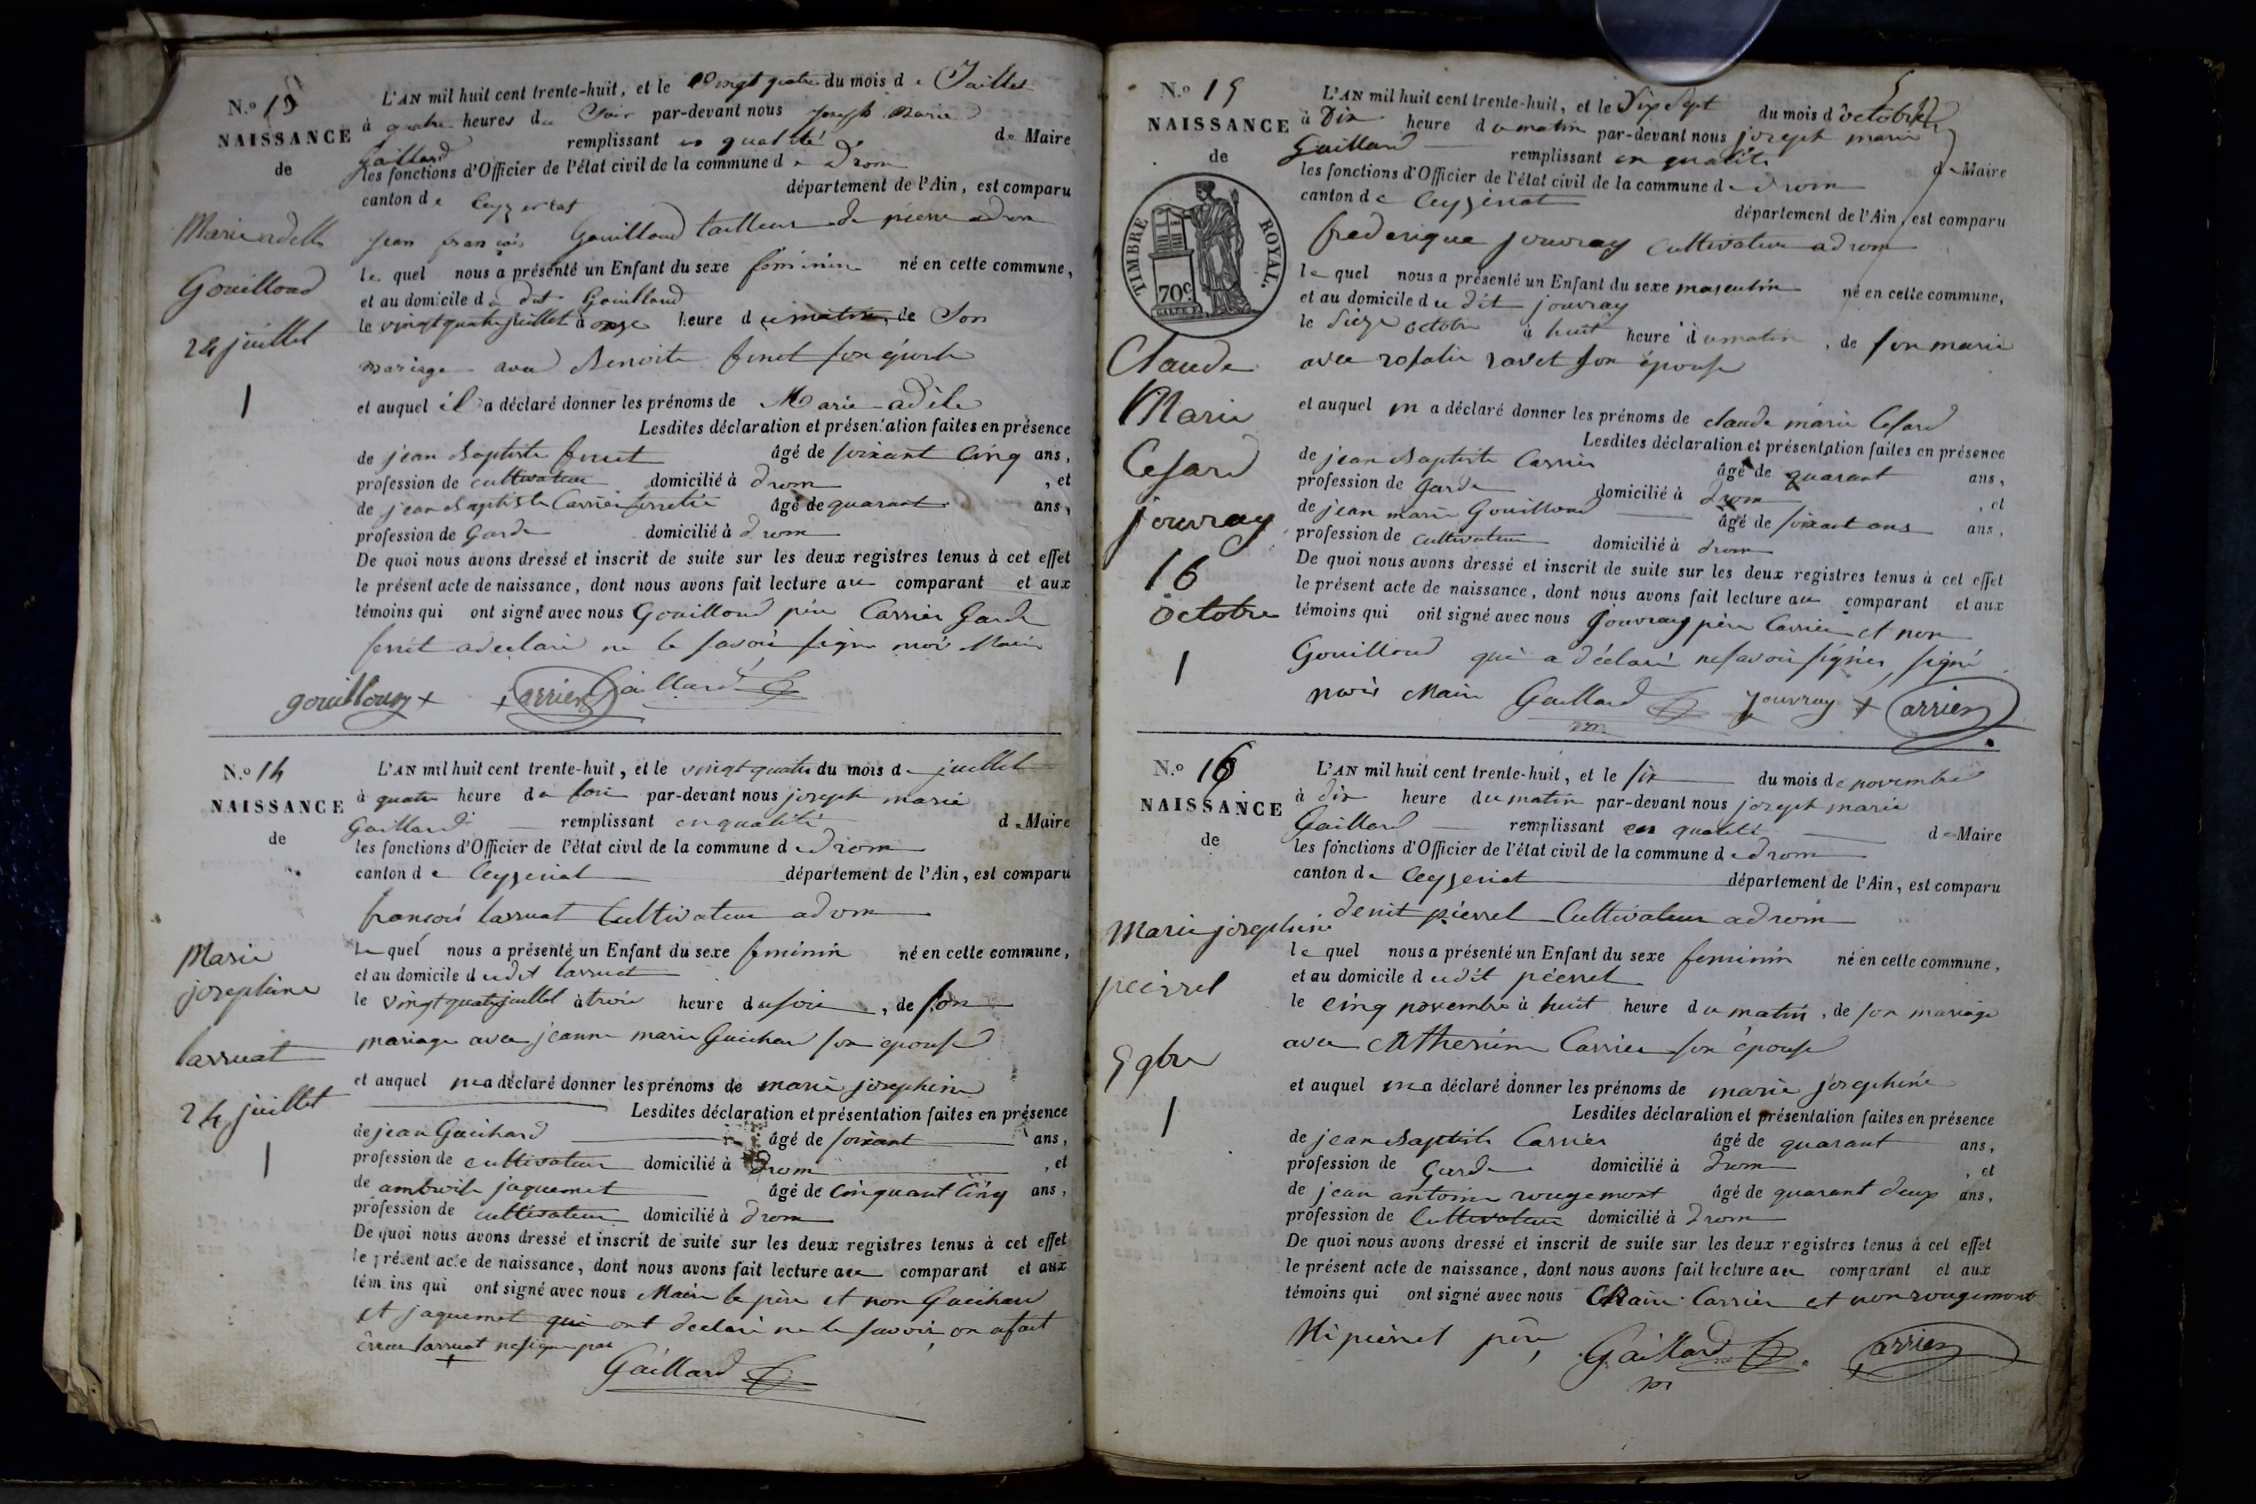 N.º 13
NAISSANCE
de
Marie adelle
Gouilloud
24 juillet
1
L'AN mil huit cent trente-huit, et le Vingt quatre du mois de Juillet
à quatre heures du Soir par-devant nous Joseph Marie
Gaillard remplissant en qualité de Maire
les fonctions d'Officier de l'état civil de la commune de Drom
canton de Ceyzeriat département de l'Ain, est comparu
Jean françois Gouilloud tailleur de pierre a drom
le quel nous a présenté un Enfant du sexe féminin né en cette commune,
et au domicile du dit Gouilloud
le vingt quatre juillet à onze heure du matin, de Son
mariage avec Benoite feret son épouse
et auquel il a déclaré donner les prénoms de Marie adèle
Lesdites déclaration et présentation faites en présence
de jean Baptiste feret âgé de soixant Cinq ans,
profession de cultivateur domicilié à drom, et
de jean Baptiste Carrier âgé de quarant ans,
profession de Garde domicilié à drom
De quoi nous avons dressé et inscrit de suite sur les deux registres tenus à cet effet
le présent acte de naissance, dont nous avons fait lecture au comparant et aux
témoins qui ont signé avec nous Gouilloud père Carrier Garde
feret a declaré ne le savoir signe nois Maire
gouilloud + + Carrier Gaillard
N.º 14
NAISSANCE
de
Marie
josephine
larruat
24 juillet
1
L'AN mil huit cent trente-huit, et le vingt quatre du mois de juillet
à quatre heure du soir par-devant nous joseph marie
Gaillard remplissant en qualité de Maire
les fonctions d'Officier de l'état civil de la commune de Drom
canton de Ceyzeriat département de l'Ain, est comparu
françois larruat Cultivateur a drom
le quel nous a présenté un Enfant du sexe feminin né en cette commune,
et au domicile du dit larruat
le vingt quatre juillet à trois heure du soir, de son
mariage avec jeanne marie Guichard son épouse
et auquel on a déclaré donner les prénoms de marie josephine
Lesdites déclaration et présentation faites en présence
de jean Guichard âgé de soixant ans,
profession de cultivateur domicilié à Drom, et
de ambroise jaquemet âgé de Cinquant Cinq ans,
profession de cultivateur domicilié à drom
De quoi nous avons dressé et inscrit de suite sur les deux registres tenus à cet effet
le présent acte de naissance, dont nous avons fait lecture au comparant et aux
témoins qui ont signé avec nous Maire le père et non Guichard
et jaquemet qui ont declaré ne le savoir on a fait
erreur larruat ne signe pas
+ Gaillard
N.º 15
NAISSANCE
de
TIMBRE ROYAL
70c
Claude
Marie
Cesard
jouvray
16
octobre
1
L'AN mil huit cent trente-huit, et le Dix Sept du mois d'octobre
à Dix heure du matin par-devant nous joseph marie
Gaillard remplissant en qualité de Maire
les fonctions d'Officier de l'état civil de la commune de drom
canton de Ceyzeriat département de l'Ain, est comparu
frederique jouvray cultivateur a drom
le quel nous a présenté un Enfant du sexe masculin né en cette commune,
et au domicile du dit jouvray
le Sieze octobre à huit heure du matin, de son marie
avec rosalie ravet son épouse
et auquel on a déclaré donner les prénoms de claude marie Cesard
Lesdites déclaration et présentation faites en présence
de jean Baptiste Carrier âgé de quarant ans,
profession de Garde domicilié à drom, et
de jean marie Gouilloud âgé de soixant ans ans,
profession de cultivateur domicilié à drom
De quoi nous avons dressé et inscrit de suite sur les deux registres tenus à cet effet
le présent acte de naissance, dont nous avons fait lecture au comparant et aux
témoins qui ont signé avec nous Jouvray père Carrier et non
Gouilloud qui a déclaré ne savoir signer, signé
nois Maire Gaillard Jouvray + Carrier
N.º 16
NAISSANCE
de
Marie josephine
pierrel
5 9bre
1
L'AN mil huit cent trente-huit, et le six du mois de novembre
à dix heure du matin par-devant nous joseph marie
Gaillard remplissant en qualité de Maire
les fonctions d'Officier de l'état civil de la commune de drom
canton de Ceyzeriat département de l'Ain, est comparu
denit pierrel Cultivateur a drom
le quel nous a présenté un Enfant du sexe feminin né en cette commune,
et au domicile du dit pierrel
le cinq novembre à huit heure du matin, de son mariage
avec Catherine Carrier son épouse
et auquel on a déclaré donner les prénoms de marie josephine
Lesdites déclaration et présentation faites en présence
de jean Baptiste Carrier âgé de quarant ans,
profession de Garde domicilié à drom, et
de jean antoine rougemont âgé de quarant deux ans,
profession de Cultivateur domicilié à drom
De quoi nous avons dressé et inscrit de suite sur les deux registres tenus à cet effet
le présent acte de naissance, dont nous avons fait lecture au comparant et aux
témoins qui ont signé avec nous Maire Carrier et non rougemont
ni pierrel père, Gaillard Carrier